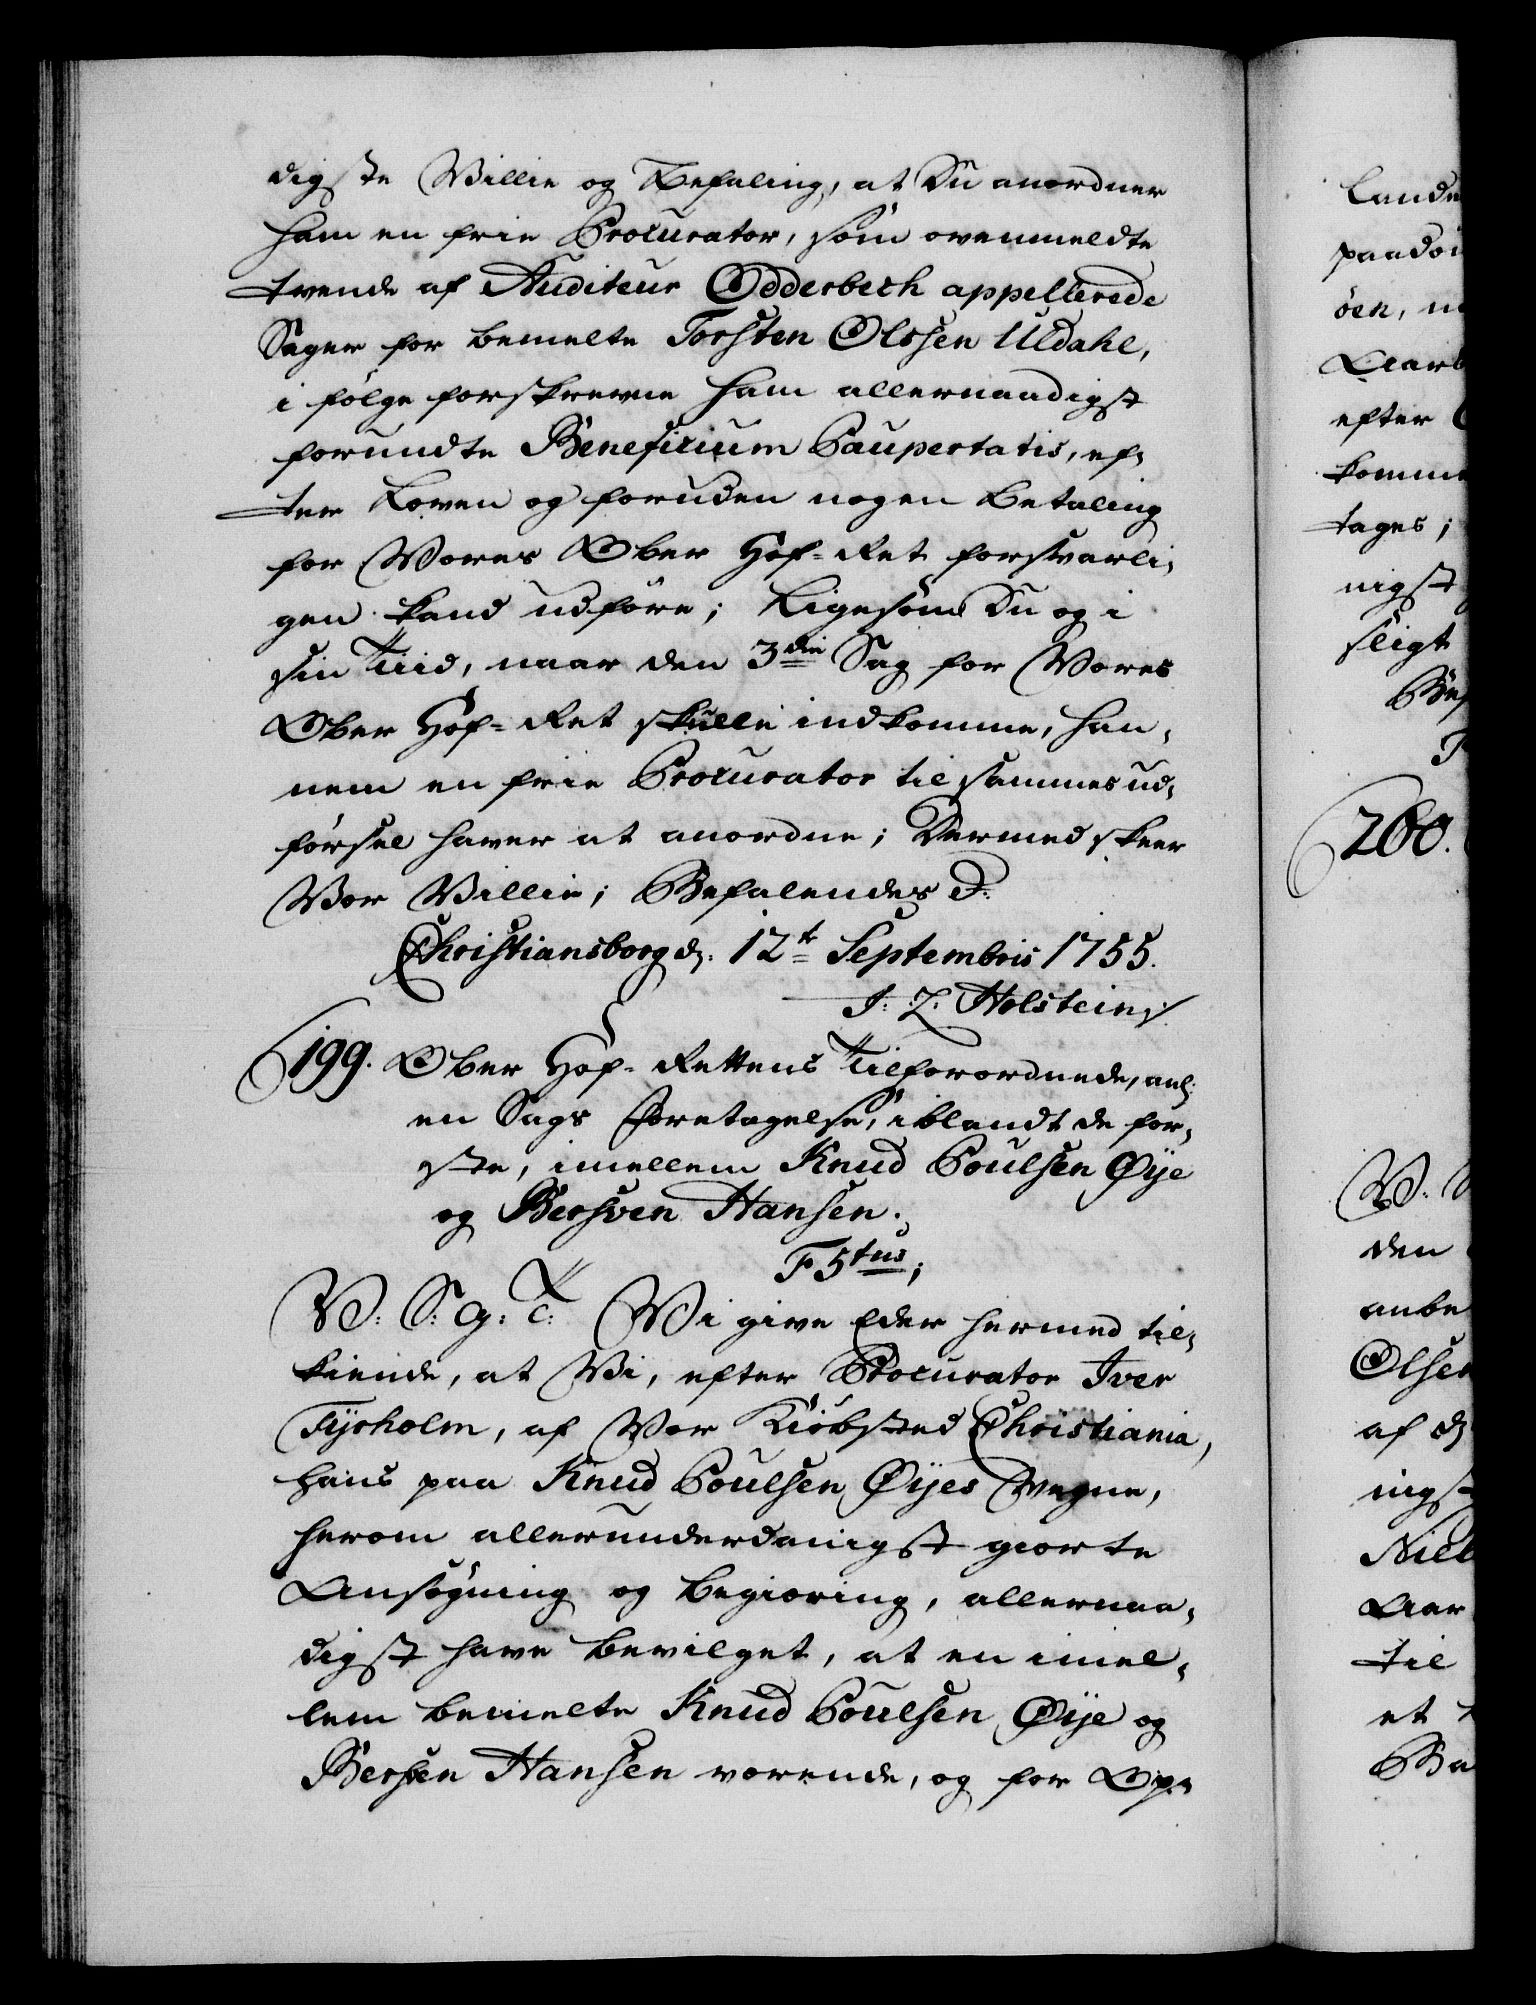 digste Villie og Befaling, at Du anordner
ham en frie Procurator, som ovenmeldte
tvende af Auditeur Odderbech appellerede
Sager for bemelte Torsten Olssen Uldahl,
i følge forskrevne ham allernaadigst
forundte Beneficium Paupertatis, ef-
ter Loven og foruden nogen Betaling
for Vores Ober Hof-Ret forsvarli-
gen kand udføre; Ligesom Du og i
sin Tiid, naar den 3die Sag for Vores
Ober Hof-Ret skulle indkomme, han-
nem en frie Procurator til sammes ud-
førsel haver at anordne; Dermed skeer
Vor Villie; Befalendes D:
Christiansborg d. 12te Septembris 1755.
J: L: Holstein /.
199. Ober Hof-Rettens Tilforordnede, anl:
en Sags Foretagelse, iblandt de før-
ste, imellem Knud Poulsen Øije
og Bersven Hansen.
F 5tus;
V: S: G: T: Vi give Eder hermed til-
kiende, at Vi, efter Procurator Iver
Tyrholm, af Vor Kiøbsted Christiania,
hans paa Knud Poulsen Øijes Vegne,
herom allerunderdanigst giorte
Ansøgning og begiæring, allernaa-
digst have bevilget, at en imel-
lem bemelte Knud Poulsen Øije og
Bersven Hansen værende, og for Op-
Lande
paadøm
øen, m
Aarb
efter
komme
tages;
nigst
sligt
Bef
F
200.
V: S
den
anbe
Olsen
af d
ningst
Niels
Aar
til
et
Ba